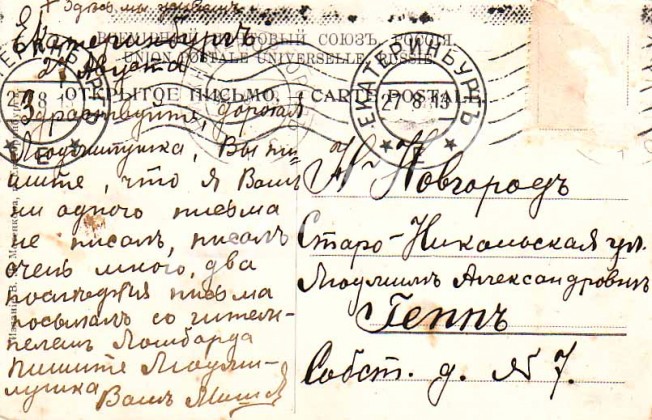 Екатеринбургъ
27 Августа
ВСЕМІРНЫЙ ПОЧТОВЫЙ СОЮЗЪ. РОССІЯ
UNION POSTALE UNIVERSELLE. RUSSIE
ОТКРЫТОЕ ПИСЬМО.
CARTE POSTALE
ЕКАТЕРИНБУРГЪ
27 8 13
ЕКАТЕРИНБУРГЪ
27 8 13
Здравствуйте, дорогая
Людмилушка, Вы пи-
шите, что я Вамъ
ни одного письма
не писалъ, писалъ
очень много, два
последнія письма
посылалъ со
Ломбарда
пишите Людми-
лушка Вашъ Миша
Н-Новгородъ
Старо-Никольская ул.
Людмилѣ Александровнѣ
Геппъ
Собст. д. № 7.